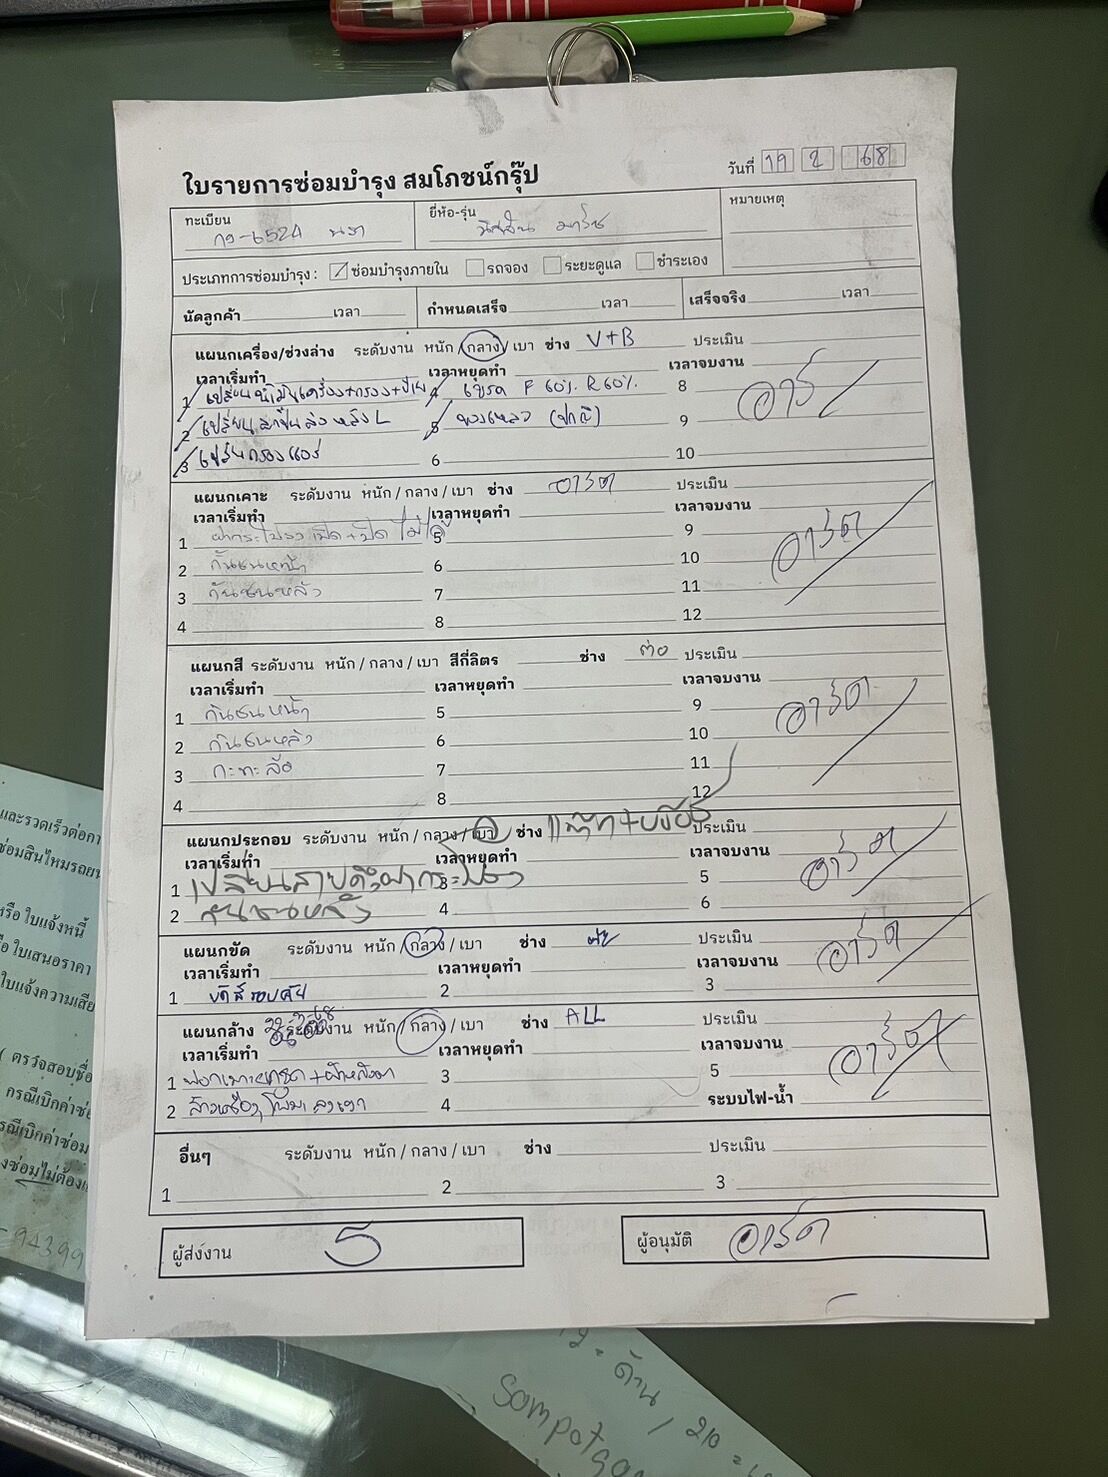 ใบรายการซ่อมบำรุง สมโภชน์กรุ๊ป
วันที่ 19 2 68
ทะเบียน
กว-6524 นรา
ยี่ห้อ-รุ่น
นิสสัน มาร์ช
หมายเหตุ
ประเภทการซ่อมบำรุง : ซ่อมบำรุงภายใน รถจอง ระยะดูแล ชำระเอง
นัดลูกค้า เวลา กำหนดเสร็จ เวลา เสร็จจริง เวลา
แผนกเครื่อง/ช่วงล่าง ระดับงาน หนัก/กลาง/เบา ช่าง V+B ประเมิน
เวลาเริ่มทำ เวลาหยุดทำ เวลาจบงาน
1 เปลี่ยนน้ำมันเครื่อง+กรอง 4 เบรค F 60% R 60% 8
2 เปลี่ยนลูกปืนล้อหลัง L 5 ของเหลว (ปกติ) 9
3 เปลี่ยนกรองแอร์ 6 10
แผนกเคาะ ระดับงาน หนัก/กลาง/เบา ช่าง อาร์ต ประเมิน
เวลาเริ่มทำ เวลาหยุดทำ เวลาจบงาน
1 ฝากระโปรง เปิด+ปิด ไม่ได้ 5 9 อาร์ต
2 กันชนหน้า 6 10
3 กันชนหลัง 7 11
4 8 12
แผนกสี ระดับงาน หนัก/กลาง/เบา สีกี่ลิตร ช่าง ต่อ ประเมิน
เวลาเริ่มทำ เวลาหยุดทำ เวลาจบงาน
1 กันชนหน้า 5 9 อาร์ต
2 กันชนหลัง 6 10
3 กะทะล้อ 7 11
4 8 12
แผนกประกอบ ระดับงาน หนัก/กลาง/เบา ช่าง ประเมิน
เวลาเริ่มทำ เวลาหยุดทำ เวลาจบงาน
1 เปลี่ยนสายดึงฝากระโปรง 3 5 อาร์ต
2 กันชนหลัง 4 6
แผนกขัด ระดับงาน หนัก/กลาง/เบา ช่าง ประเมิน
เวลาเริ่มทำ เวลาหยุดทำ เวลาจบงาน อาร์ต
1 ขัดสีรอบคัน 2 3
แผนกล้าง ระดับงาน หนัก/กลาง/เบา ช่าง ALL ประเมิน
เวลาเริ่มทำ เวลาหยุดทำ เวลาจบงาน
1 ฟอกเบาะ +ผ้าหลังคา 3 5 อาร์ต
2 ล้างเครื่อง 4 ระบบไฟ-น้ำ
อื่นๆ ระดับงาน หนัก/กลาง/เบา ช่าง ประเมิน
1 2 3
ผู้ส่งงาน 5 ผู้อนุมัติ อาร์ต
และรวดเร็วต่อกา
ซ่อมสินไหมรถยน
หรือ ใบแจ้งหนี้
อ ใบเสนอราคา
ใบแจ้งความเสีย
( ตรวจสอบชื่อ
กรณีเบิกค่าซ่อ
รณีเบิกค่าซ่อม
งซ่อมไม่ต้อง
94399
ด้าน / 210 =